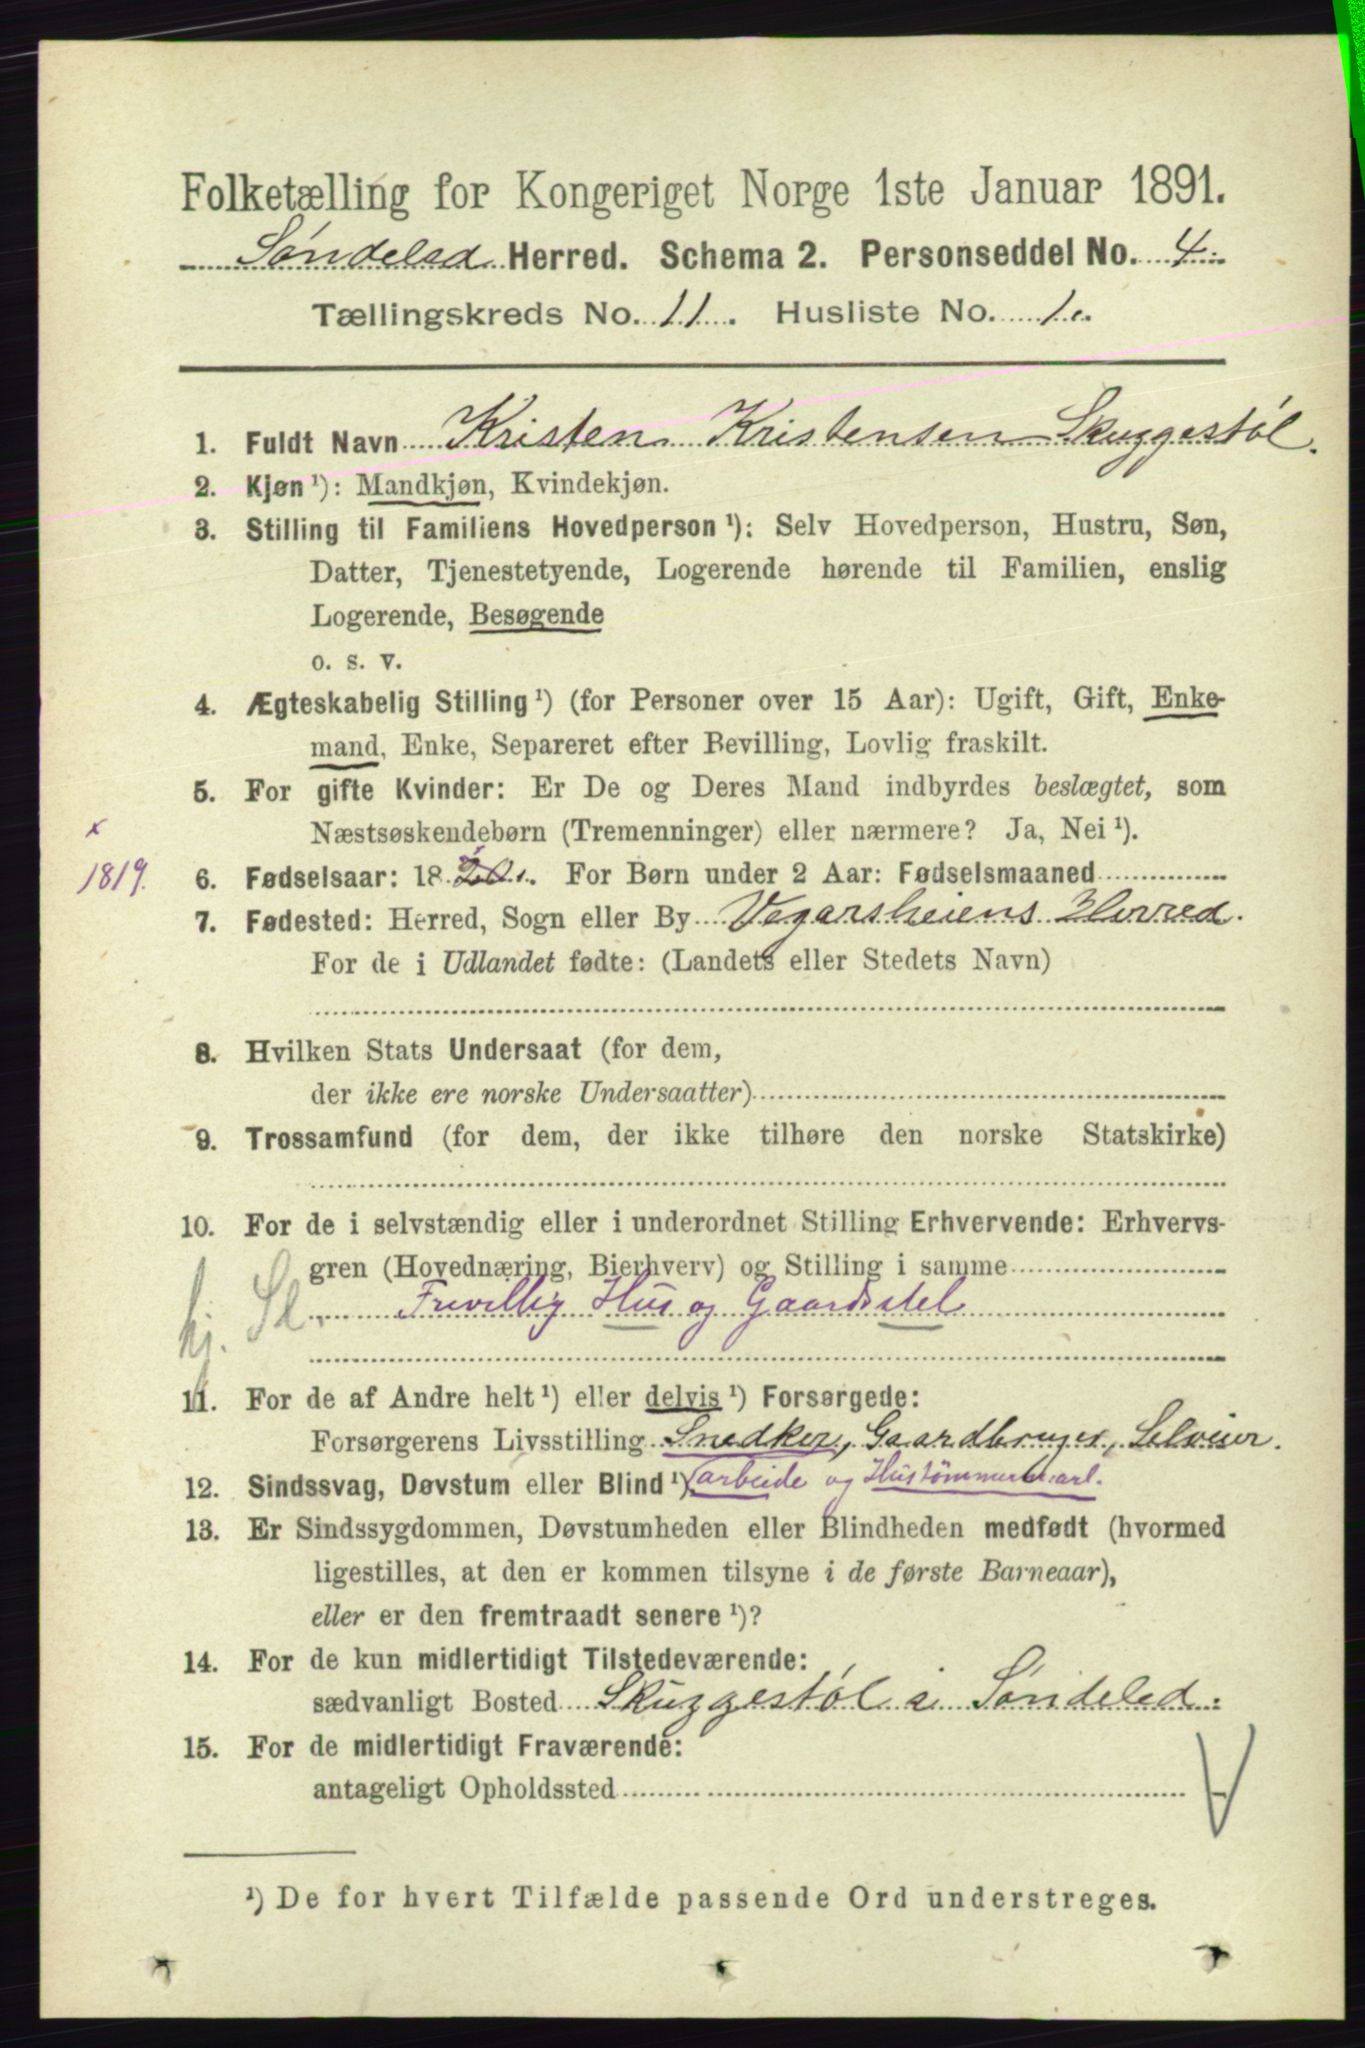 Folketælling for Kongeriget Norge 1ste Januar 1891.
Søndeled Herred. Schema 2. Personseddel No. 4.
Tællingskreds No. 11. Husliste No. 1.
1. Fuldt Navn Kristen Kristensen Skuggestøl.
2. Kjøn ¹): Mandkjøn, Kvindekjøn.
3. Stilling til Familiens Hovedperson ¹): Selv Hovedperson, Hustru, Søn,
Datter, Tjenestetyende, Logerende hørende til Familien, enslig
Logerende, Besøgende
o. s. v.
4. Ægteskabelig Stilling ¹) (for Personer over 15 Aar): Ugift, Gift, Enke-
mand, Enke, Separeret efter Bevilling, Lovlig fraskilt.
5. For gifte Kvinder: Er De og Deres Mand indbyrdes beslægtet, som
Næstsøskendebørn (Tremenninger) eller nærmere? Ja, Nei ¹).
x
1819.
6. Fødselsaar: 1820. For Børn under 2 Aar: Fødselsmaaned
7. Fødested: Herred, Sogn eller By Vegarsheiens Herred.
For de i Udlandet fødte: (Landets eller Stedets Navn)
8. Hvilken Stats Undersaat (for dem,
der ikke ere norske Undersaatter)
9. Trossamfund (for dem, der ikke tilhøre den norske Statskirke)
10. For de i selvstændig eller i underordnet Stilling Erhvervende: Erhvervs-
gren (Hovednæring, Bierhverv) og Stilling i samme
hj. Sl. Frivillig Hus og Gaardsstel
11. For de af Andre helt ¹) eller delvis ¹) Forsørgede:
Forsørgerens Livsstilling Snedker, Gaardbruger, Selveier.
12. Sindssvag, Døvstum eller Blind ¹). arbeide og Hustømmermarl.
13. Er Sindssygdommen, Døvstumheden eller Blindheden medfødt (hvormed
ligestilles, at den er kommen tilsyne i de første Barneaar),
eller er den fremtraadt senere ¹)?
14. For de kun midlertidigt Tilstedeværende:
sædvanligt Bosted Skuggestøl i Søndeled.
15. For de midlertidigt Fraværende:
antageligt Opholdssted
¹) De for hvert Tilfælde passende Ord understreges.